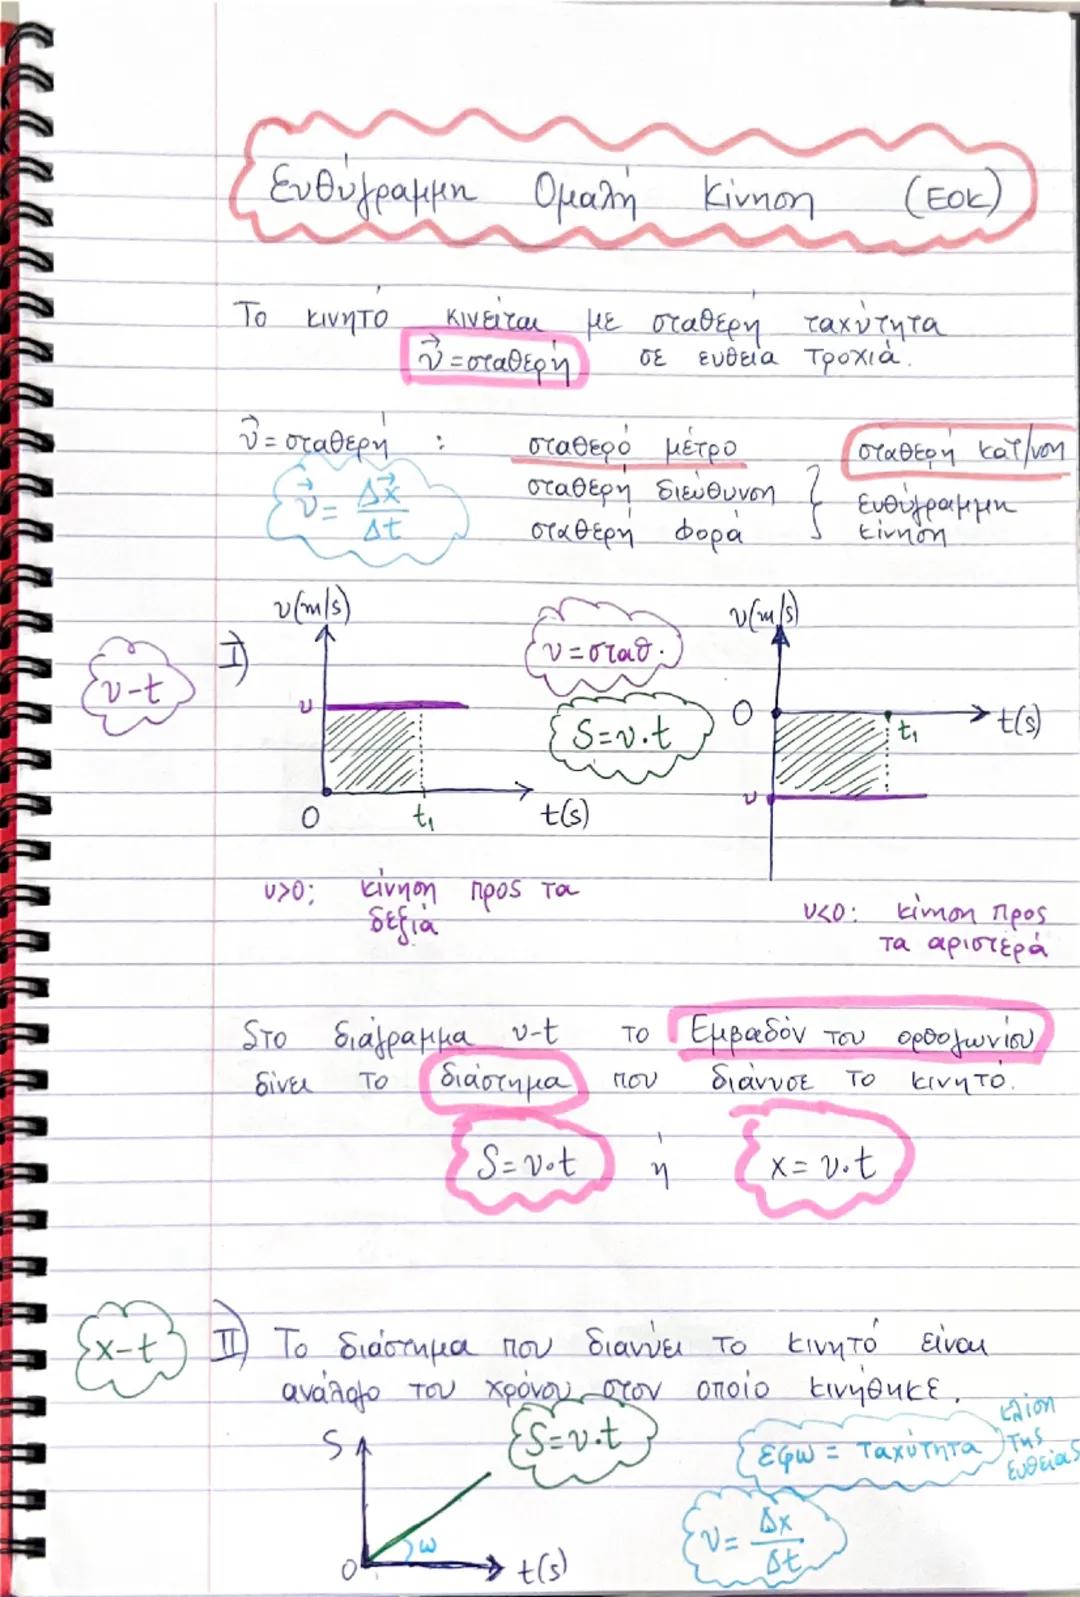 Ευθύγραμμη Ομαλή Κίνηση (ΕΟΚ)
Το κινητό κινείται με σταθερή ταχύτητα
υ⃗ = σταθερή σε ευθεία τροχιά.
υ⃗ = σταθερή : σταθερό μέτρο σταθερή κατ/νση
υ⃗ = Δx⃗/Δt σταθερή διεύθυνση } ευθύγραμμη
σταθερή φορά κίνηση
υ-t
I)
υ(m/s)
υ
O
t₁
t(s)
υ=σταθ.
S=υ.t
υ(m/s)
O
t₁
t(s)
υ
υ>0: κίνηση προς τα
δεξιά
υ<0: κίνηση προς
τα αριστερά
Στο διάγραμμα υ-t το Εμβαδόν του ορθογωνίου
δίνει το διάστημα που διάνυσε το κινητό.
S=υ.t ή x=υ.t
x-t
II) Το διάστημα που διανύει το κινητό είναι
ανάλογο του χρόνου στον οποίο κινήθηκε.
S
S=υ.t
ω
O
t(s)
εφω = ταχύτητα
κλίση
της
ευθείας
υ = Δx/Δt